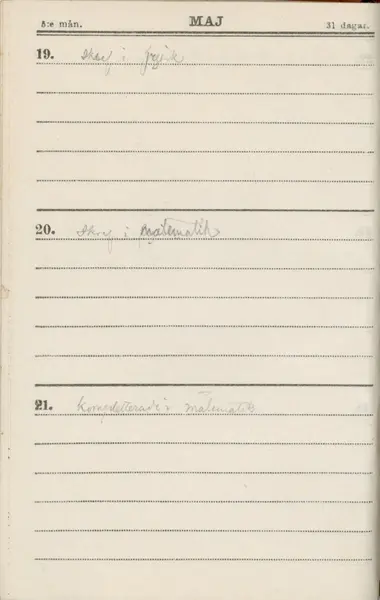 5:e mån. MAJ 31 dagar.
19. Skrev i fysik
20. Skrev i matematik
21. Kompletterade i matematik